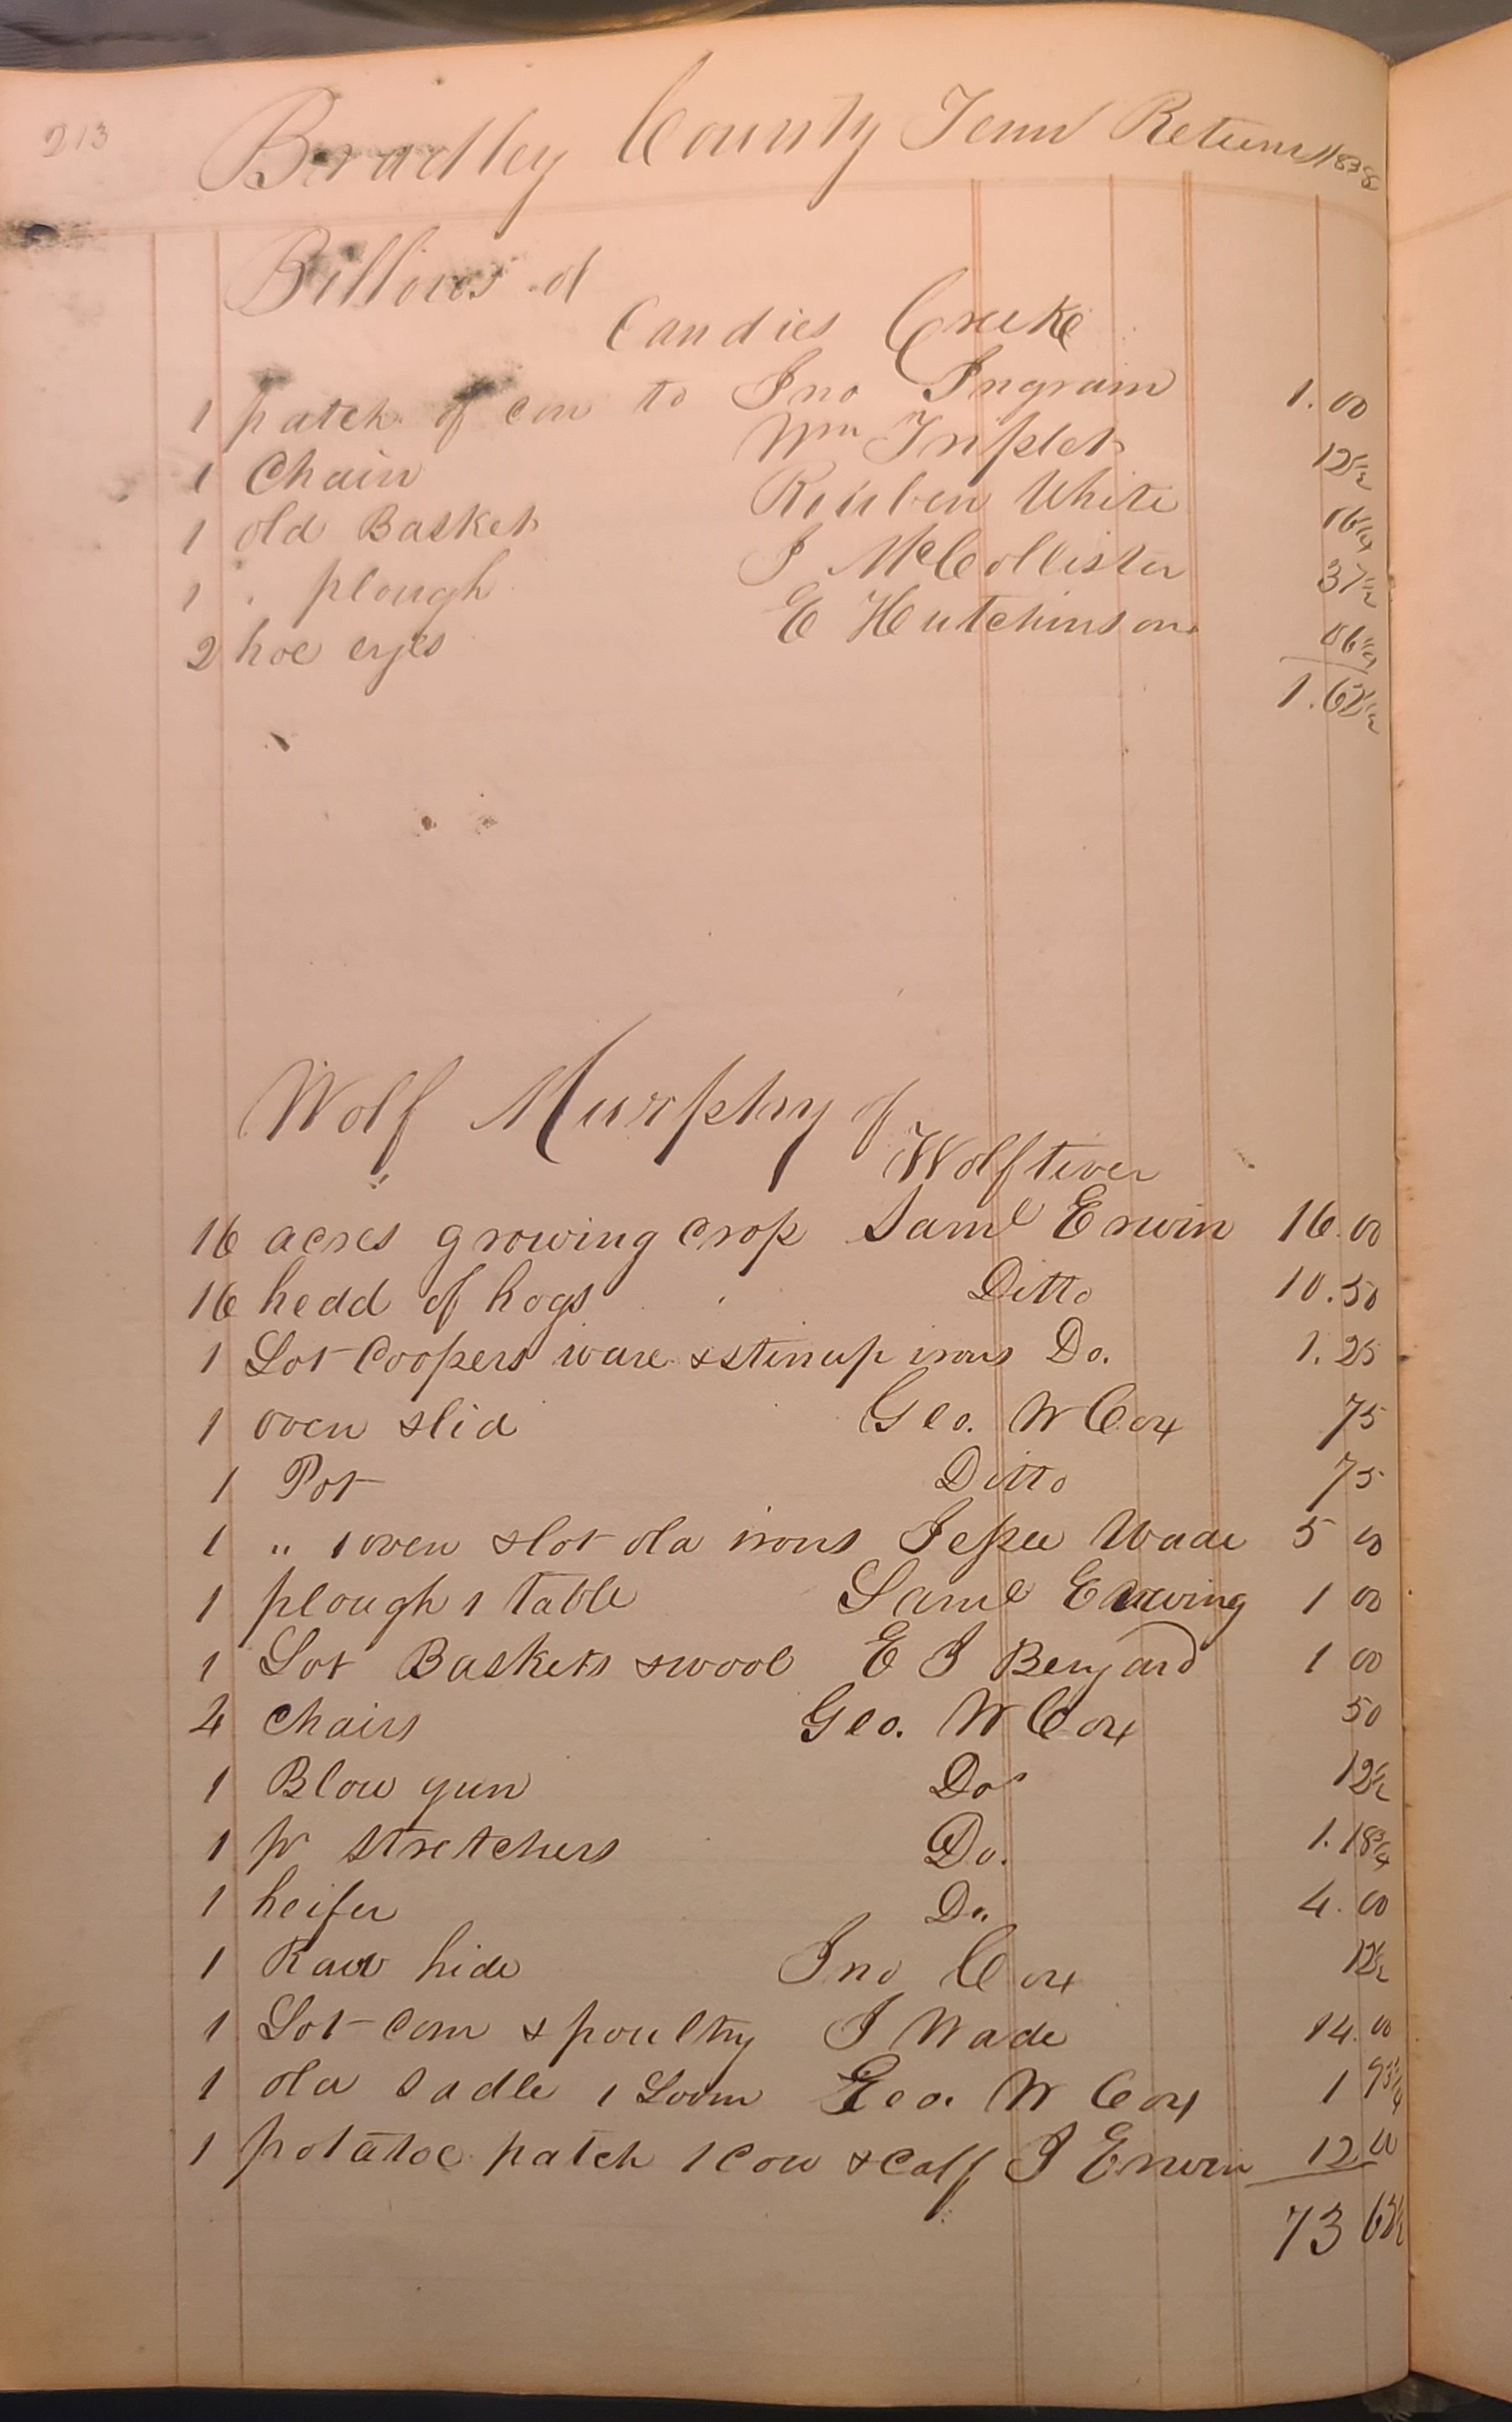 213
Bradley County Tenn Returns 1838
Billows of
Candies Creeke
1 patch of corn to Jno Ingram 1.00
1 Chain Wm Triplet 12 1/2
1 old Basket Reuben White 06 1/4
1 " plough J McCollister 37 1/2
2 hoe eyes E Hutchinson 06 1/4
1.62 1/2
Wolf Murphy of
Wolftiver
16 acres growing crop Saml Erwin 16.00
16 head of hogs Ditto 10.50
1 Lot Coopers ware & stirrup irons Do. 1.25
1 oven & lid Geo. W Cox 75
1 Pot Ditto 75
1 " 1 oven & lot old irons Jessee Wade 5 00
1 plough 1 table Saml Erwing 1 00
1 Lot Baskets & wool E J Benyard 1 00
4 chairs Geo. W Cox 50
1 Blow gun Do 12 1/2
1 pr stretchers Do. 1.18 3/4
1 heifer Do 4.00
1 Raw hide Jno Cox 12 1/2
1 Lot corn & poultry J Wade 14.00
1 old sadle 1 Loom Geo. W Cox 1 93 3/4
1 potatoe patch 1 cow & calf J Erwin 12 00
73 62 1/2